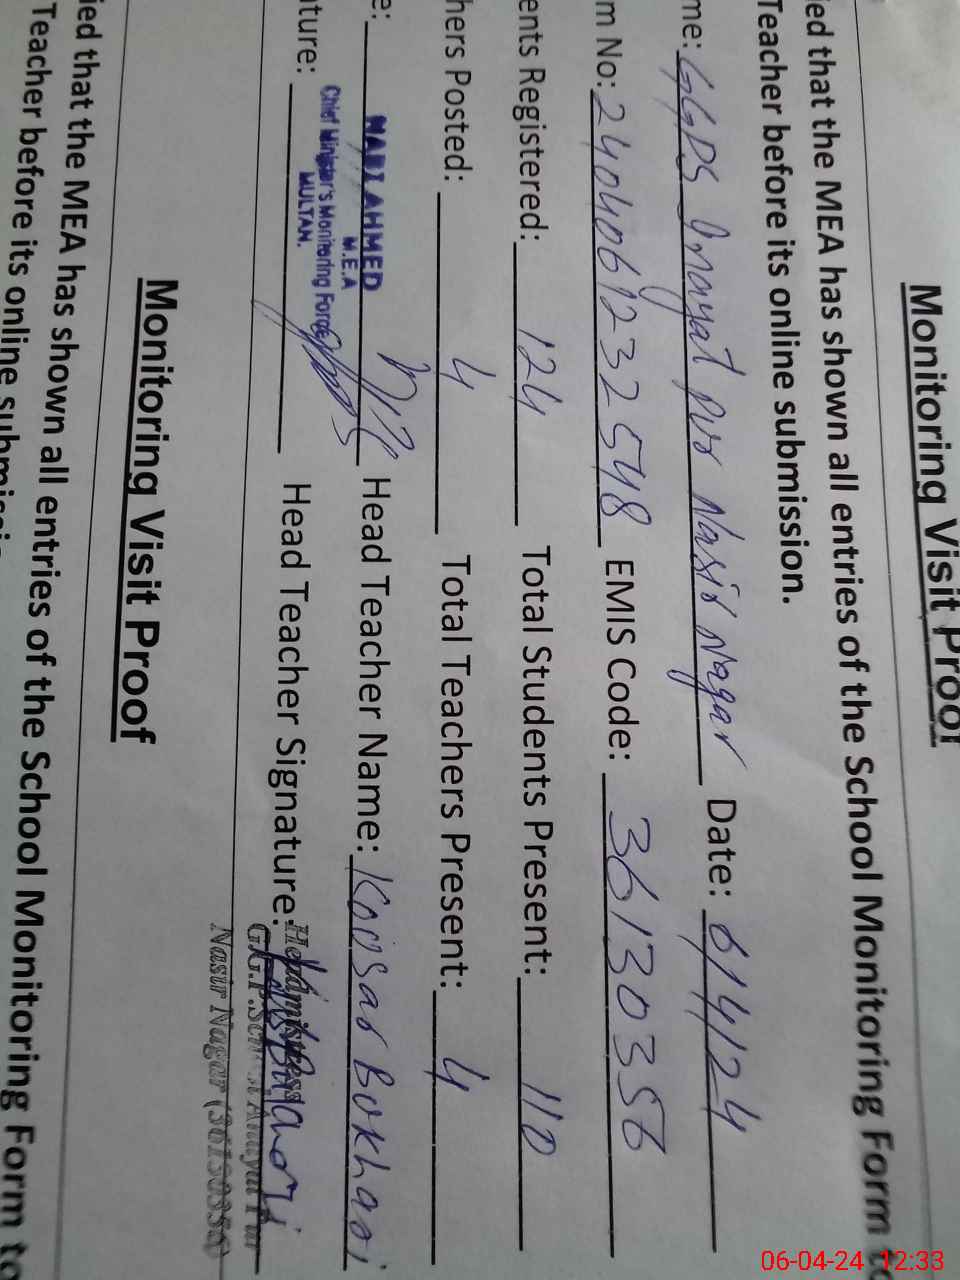 Monitoring Visit Proof
ied that the MEA has shown all entries of the School Monitoring Form to
Teacher before its online submission.
me: GGPS Inayat Pur Nasir Nagar Date: 6/4/24
m No: 2404061232548 EMIS Code: 36130356
ents Registered: 124 Total Students Present: 110
hers Posted: 4 Total Teachers Present: 4
e: AHMED Head Teacher Name: Kosar Bokhari
M.E.A
Chief Minister's Monitoring Force
MULTAN.
ature: Head Teacher Signature:
Headmistress
G.G.P.School Anayat Pur
Nasir Nagar (36130356)
Monitoring Visit Proof
ied that the MEA has shown all entries of the School Monitoring Form to
Teacher before its online submissio
06-04-24 12:33